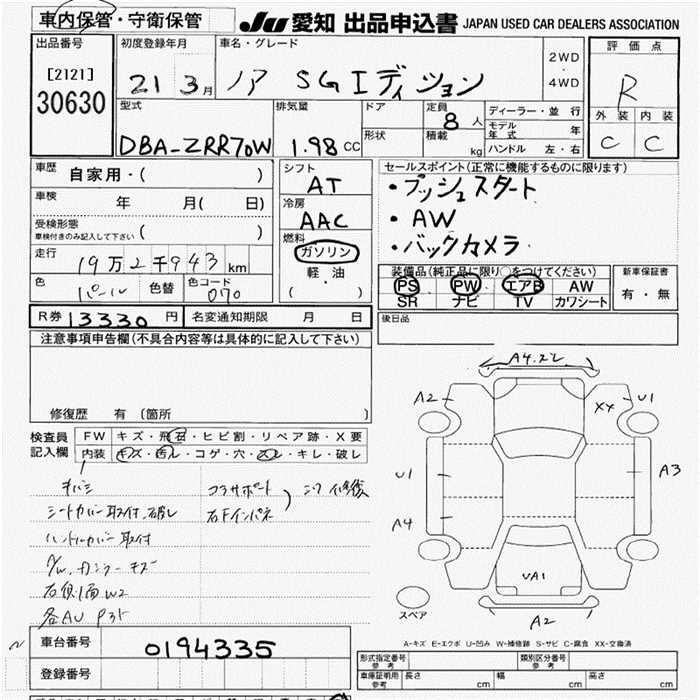 車内保管・守衛保管
JU 愛知 出品申込書 JAPAN USED CAR DEALERS ASSOCIATION
出品番号
[2121]
30630
初度登録年月
21 3月
車名・グレード
ノア SGエディション
2WD
・
4WD
評価点
R
外装 内装
C C
型式
DBA-ZRR70W
排気量
1.98 CC
ドア
形状
定員
8 人
積載
kg
ディーラー・並行
モデル年式 年
ハンドル 左・右
車歴
自家用・( )
車検
年 月( 日)
受検形態
車検付きのみ記入して下さい ( )
走行
19万2千943 km
色
パール
色替
色コード
070
シフト
AT
冷房
AAC
燃料
ガソリン
軽・油
( )
セールスポイント(正常に機能するものに限ります)
・プッシュスタート
・AW
・バックカメラ
装備品(純正品に限り○をつけてください)
PS PW エアB AW
SR ナビ TV カワシート
新車保証書
有・無
R券 13330 円
名変通知期限 月 日
後日品
注意事項申告欄(不具合内容等は具体的に記入して下さい)
修復歴 有 (箇所 )
検査員
記入欄
FW キズ・飛石・ヒビ割・リペア跡・X要
内装 キズ・汚れ・コゲ・穴・スレ・キレ・破レ
シートカバー取付、破レ
コアサポート
右Fインパネ
ハンドルカバー取付
右側面W2
A4.スレ
A2
XX
U1
U1
A3
A4
UA1
A2
スペア
A-キズ E-エクボ U-凹み W-補修跡 S-サビ C-腐食 XX-交換済
車台番号
0194335
登録番号
形式指定番号
参考
類別区分番号
参考
車庫証明用
参考
長さ cm
幅 cm
高さ cm